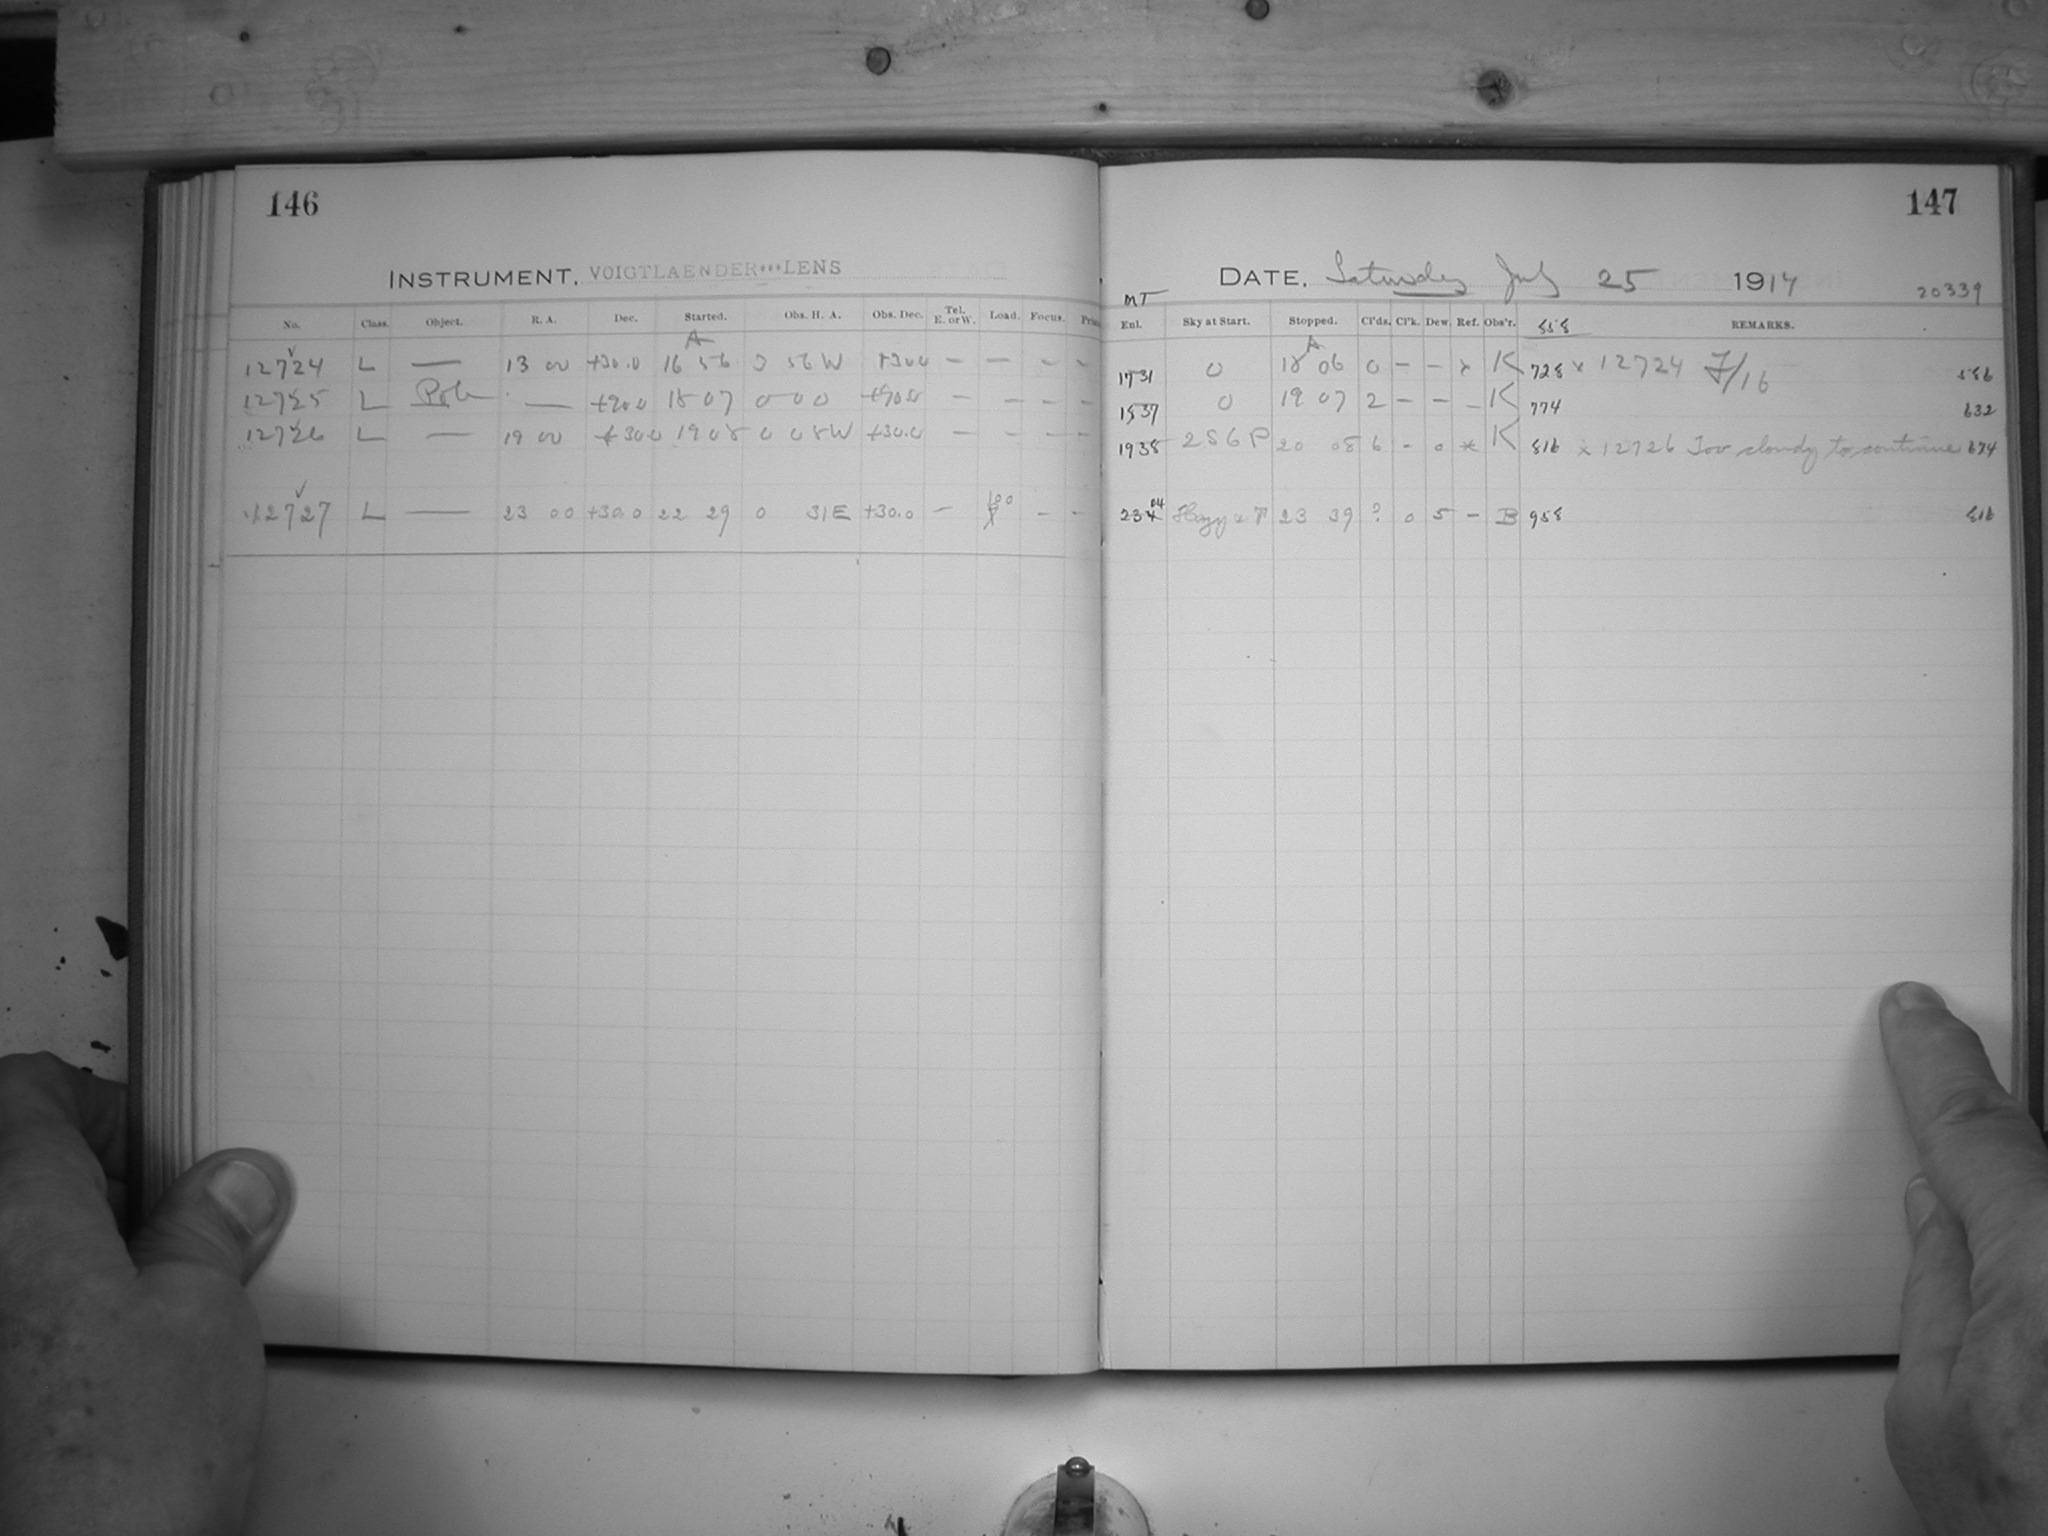 146
147
INSTRUMENT, VOIGTLAENDER***LENS
DATE, Saturday July 25 1914 20339
No. Class. Object. R. A. Dec. Started. Obs. H. A. Obs. Dec. Tel. E. or W. Load. Focus.
MT
Enl. Sky at Start. Stopped. Cl'ds. Cl'k. Dew. Ref. Obs'r. 558 REMARKS.
A
A
12724 L — 13 00 +30.0 16 56 3 56 W +30.0 — — — —
1731 0 18 06 0 — — x K 728 x 12724 F/16 586
12725 L Pole — +90.0 18 07 0 00 +90.0 — — — —
1837 0 19 07 2 — — — K 774 632
12726 L — 19 00 +30.0 19 08 0 08 W +30.0 — — — —
1938 2S6P 20 08 6 - 0 * K 816 x 12726 Too cloudy to continue 674
12727 L — 23 00 +30.0 22 29 0 31 E +30.0 — 100 - -
2304 Hazy & 23 39 ? 0 5 — B 958 816